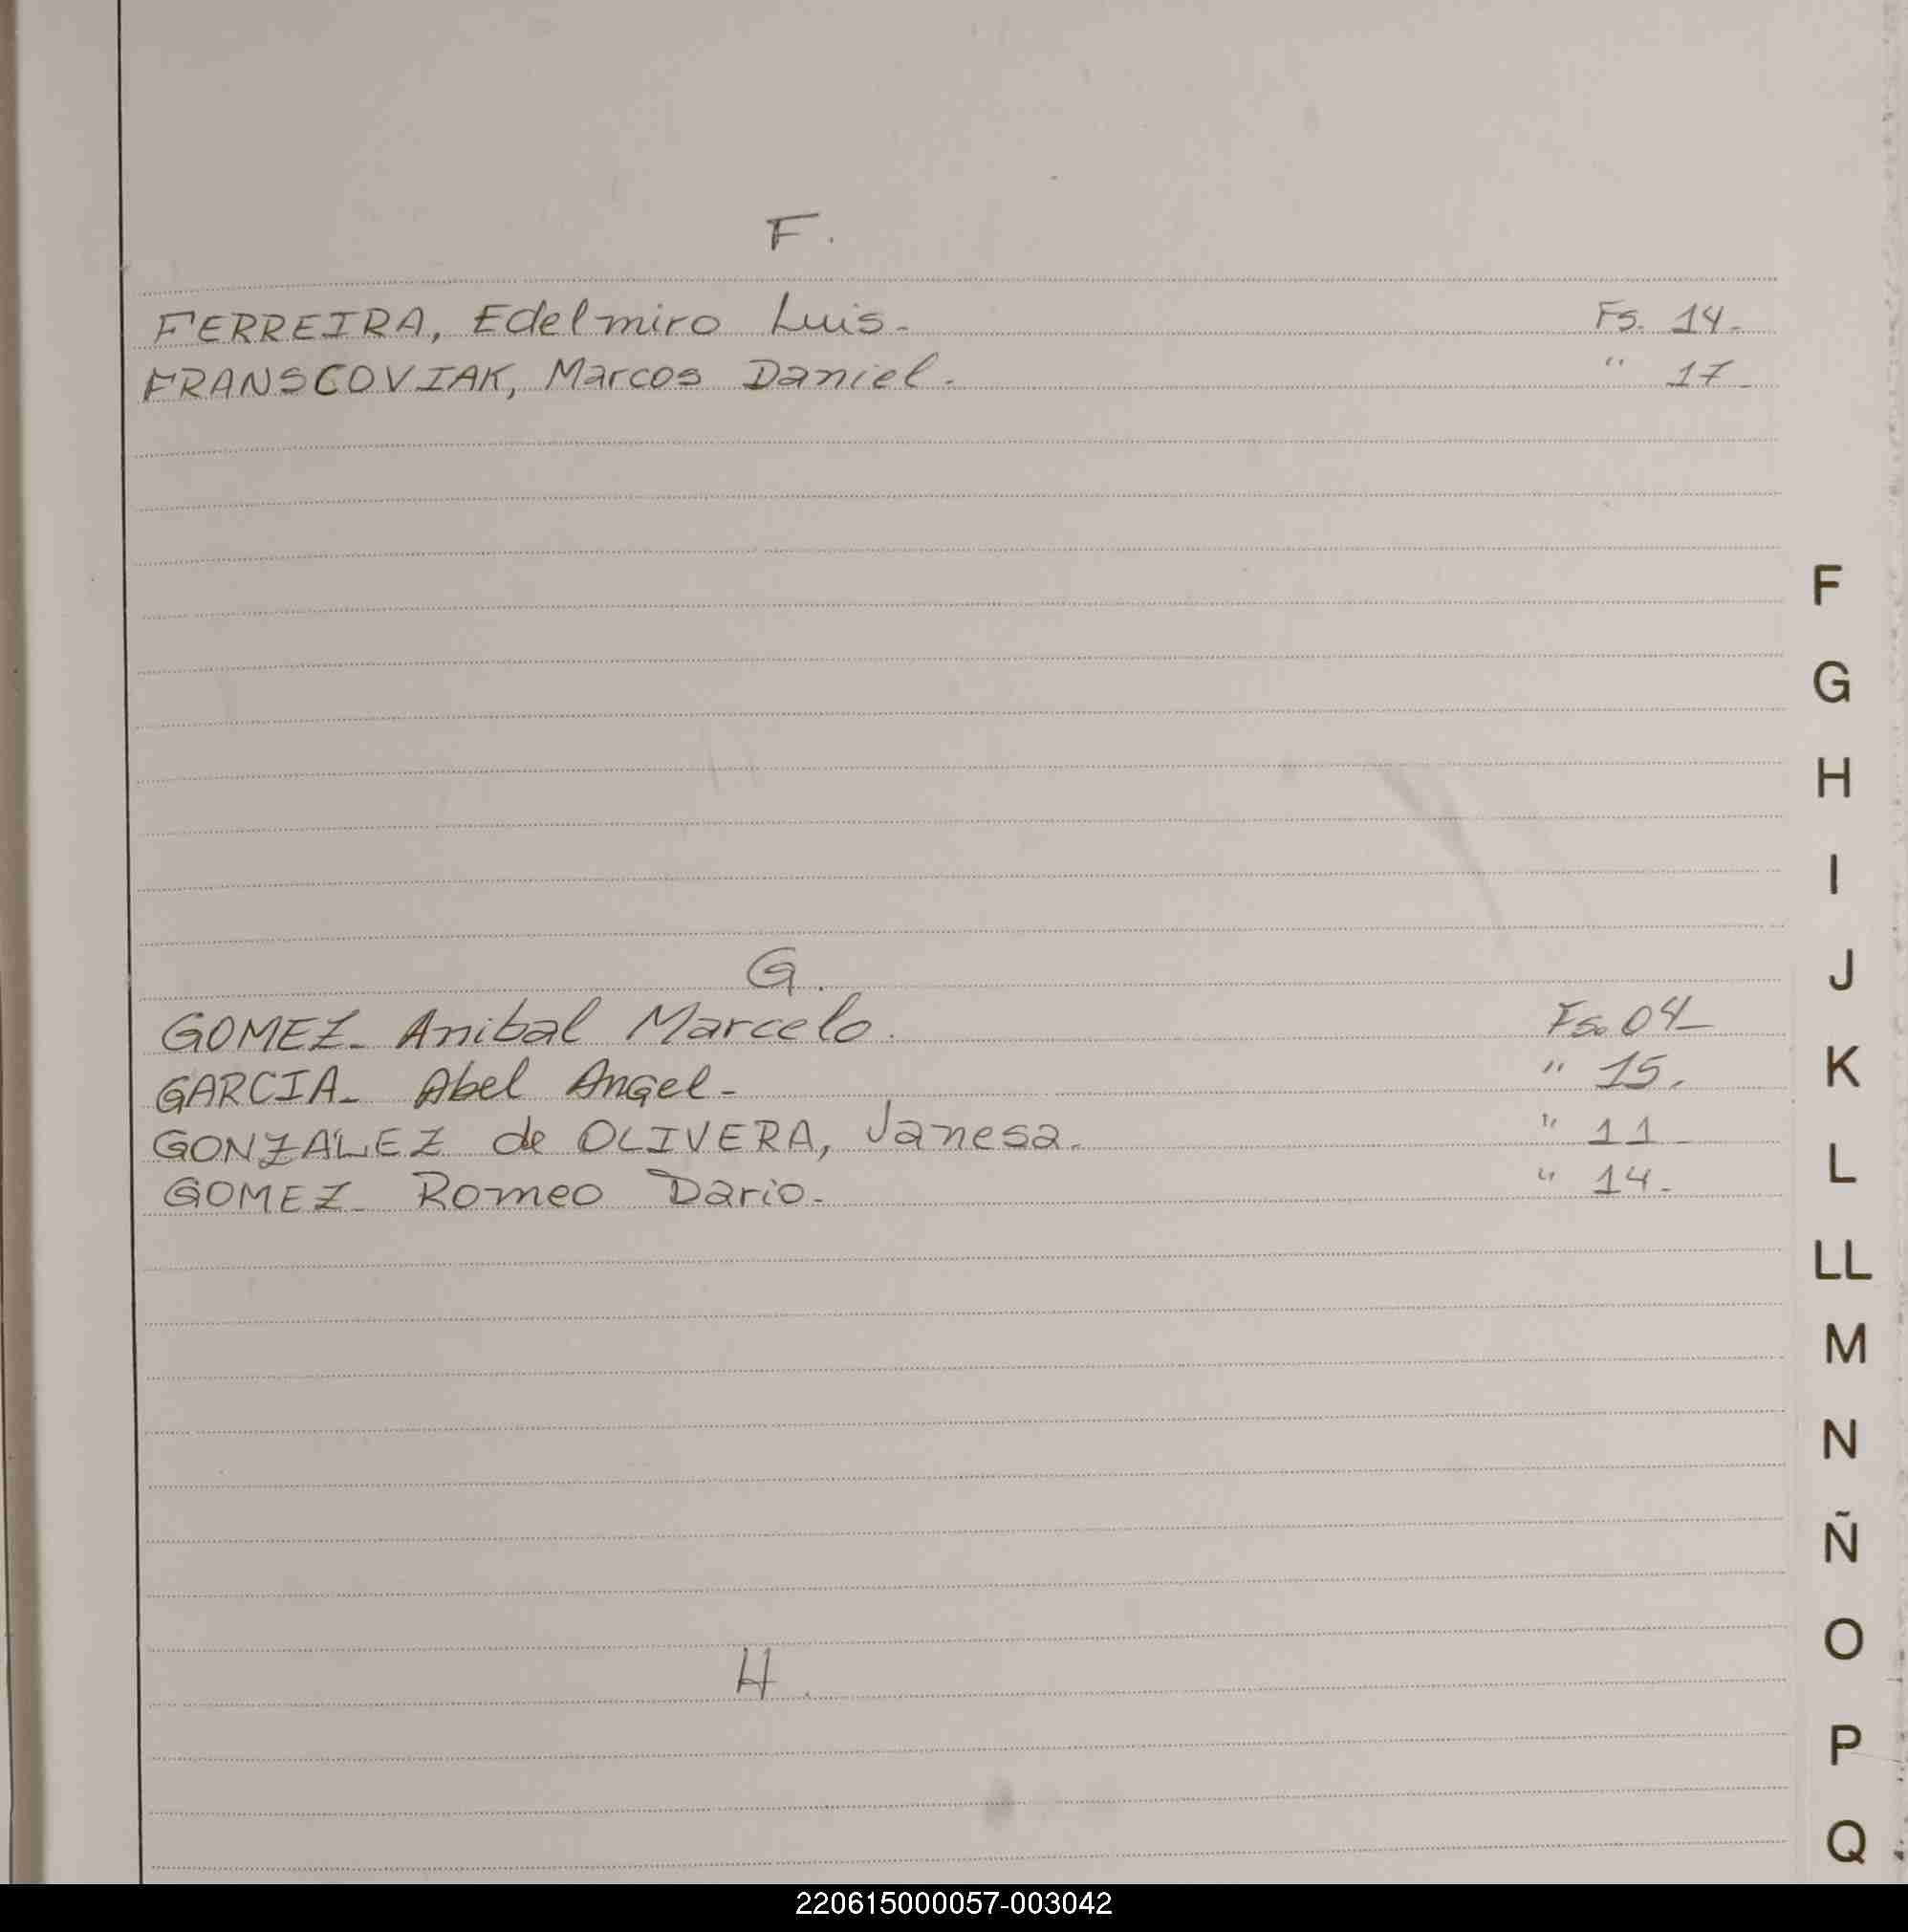 F.
FERREIRA, Edelmiro Luis- Fs. 14-
FRANSCOVIAK, Marcos Daniel- " 17-
G.
GOMEZ- Anibal Marcelo. Fs. 04-
GARCIA- Abel Angel- " 15.
GONZÁLEZ de OLIVERA, Janesa. " 11-
GOMEZ- Romeo Dario- " 14-
H.
F
G
H
I
J
K
L
LL
M
N
Ñ
O
P
Q
220615000057-003042